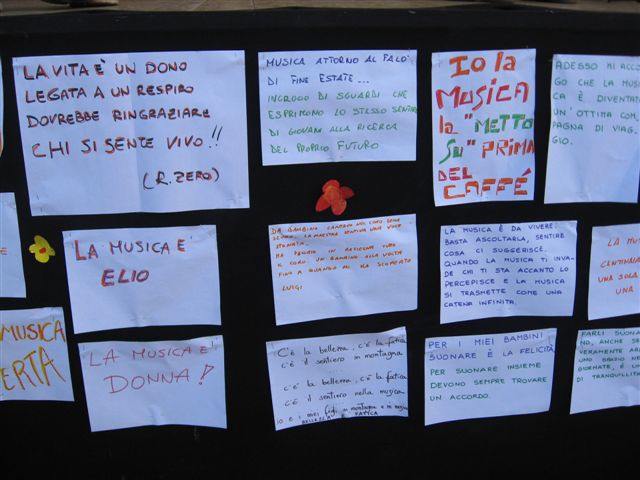 LA VITA E' UN DONO
LEGATA A UN RESPIRO
DOVREBBE RINGRAZIARE
CHI SI SENTE VIVO!!
(R. ZERO)
MUSICA ATTORNO AL FALO'
DI FINE ESTATE...
INCROCIO DI SGUARDI CHE
ESPRIMONO LO STESSO SENTIRE
DI GIOVANI ALLA RICERCA
DEL PROPRIO FUTURO
IO la
MUSICA
la "METTO
SU" PRIMA
DEL
CAFFÉ
ADESSO MI ACCOR
GO CHE LA MUSI
CA È DIVENTA
UN'OTTIMA COM
PAGNA DI VIAG
GIO.
LA MUSICA E'
ELIO
DA BAMBINO CANTAVO NEL CORO DELLE
SCUOLE. LA MAESTRA SENTIVA UNA VOCE
STONATA.
HA DIVISO IN
IL CORO, UN BAMBINO ALLA VOLTA
FINO A QUANDO MI HA SCOPERTO
LUIGI
LA MUSICA È DA VIVERE:
BASTA ASCOLTARLA, SENTIRE
COSA CI SUGGERISCE.
QUANDO LA MUSICA TI INVA-
DE CHI TI STA ACCANTO LO
PERCEPISCE E LA MUSICA
SI TRASMETTE COME UNA
CATENA INFINITA.
LA MU
CENTINAIA
UNA SOLA
UNA
MUSICA
ERTA
LA MUSICA E'
DONNA!
C'è la bellezza, c'è la fatica
c'è il sentiero in montagna
c'è la bellezza, c'è la fatica
c'è il sentiero nella musica
io e i miei figli in montagna e in musica
BELLEZZA E FATICA
PER I MIEI BAMBINI
SUONARE È LA FELICITÀ
PER SUONARE INSIEME
DEVONO SEMPRE TROVARE
UN ACCORDO.
FARLI SUONAR
NO, ANCHE SE
VERAMENTE AR
UNO SPAZIO NE
GIORNATE, È UN
DI TRANQUILLIT